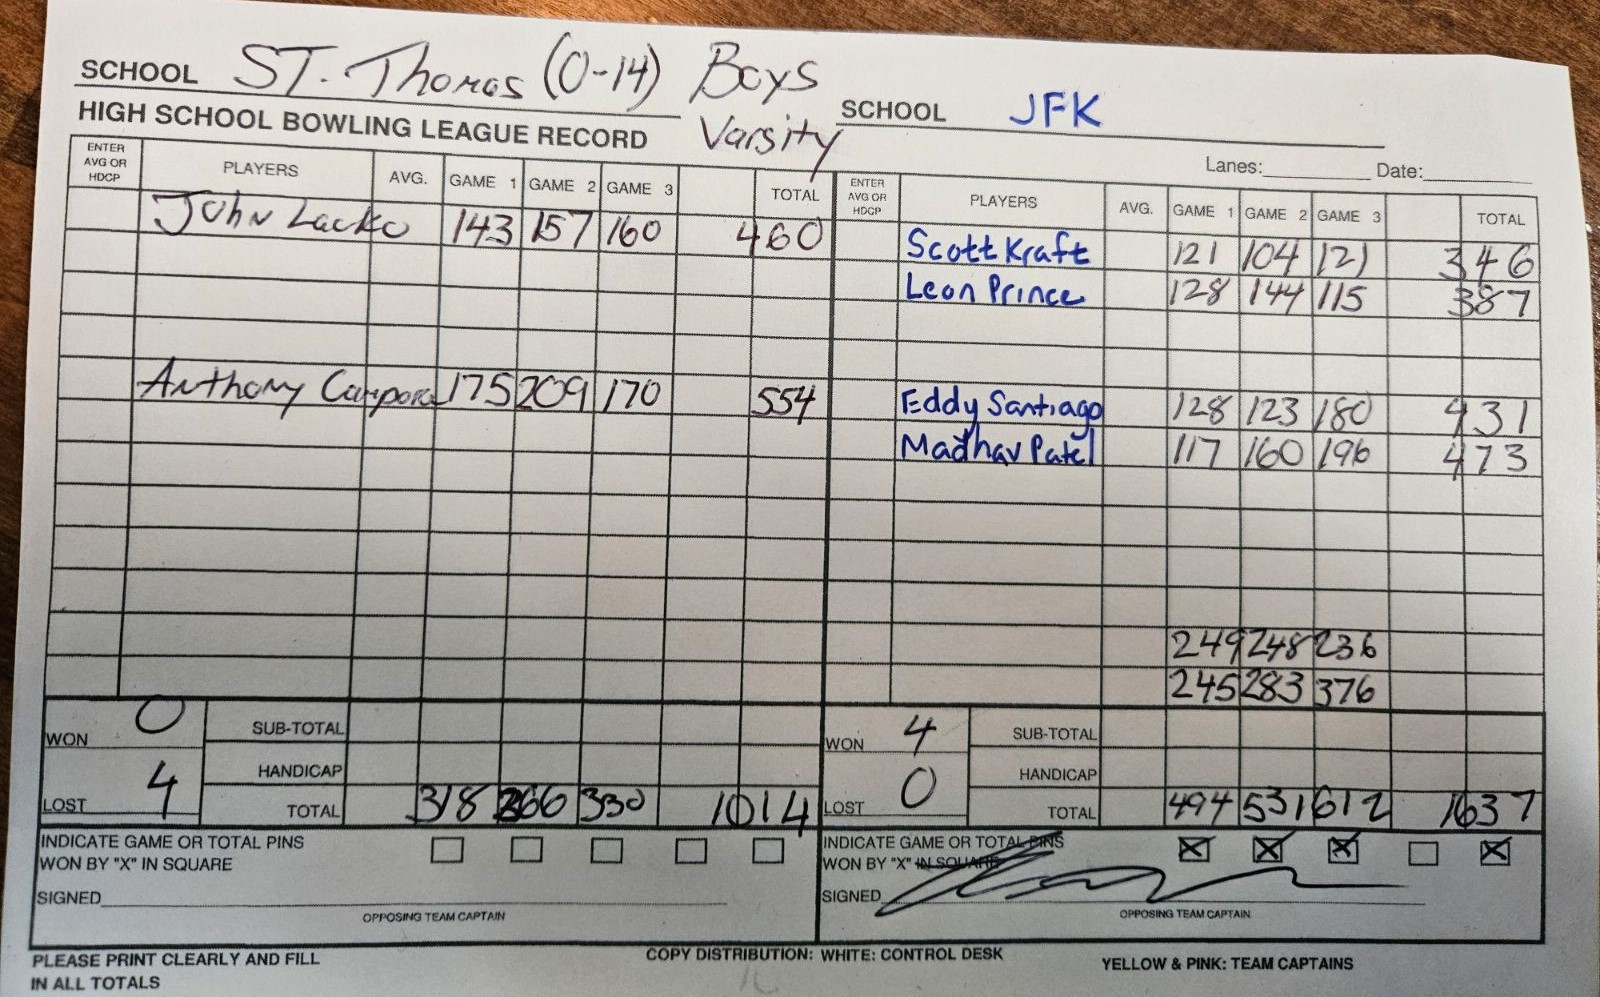 SCHOOL ST. Thomas (0-14) Boys Varsity
SCHOOL JFK
HIGH SCHOOL BOWLING LEAGUE RECORD
Lanes: Date:
ENTER AVG OR HDCP PLAYERS AVG. GAME 1 GAME 2 GAME 3 TOTAL
John Lacko 143 157 160 460
Anthony Campora 175 209 170 554
318 366 330 1014
WON 0
LOST 4
SUB-TOTAL
HANDICAP
TOTAL
INDICATE GAME OR TOTAL PINS
WON BY "X" IN SQUARE
SIGNED
OPPOSING TEAM CAPTAIN
ENTER AVG OR HDCP PLAYERS AVG. GAME 1 GAME 2 GAME 3 TOTAL
Scott Kraft 121 104 121 346
Leon Prince 128 144 115 387
Eddy Santiago 128 123 180 431
Madhav Patel 117 160 196 473
249 248 236
245 283 376
WON 4
LOST 0
SUB-TOTAL
HANDICAP
TOTAL 494 531 612 1637
INDICATE GAME OR TOTAL PINS
WON BY "X" IN SQUARE
SIGNED
OPPOSING TEAM CAPTAIN
PLEASE PRINT CLEARLY AND FILL
IN ALL TOTALS
COPY DISTRIBUTION: WHITE: CONTROL DESK
YELLOW & PINK: TEAM CAPTAINS